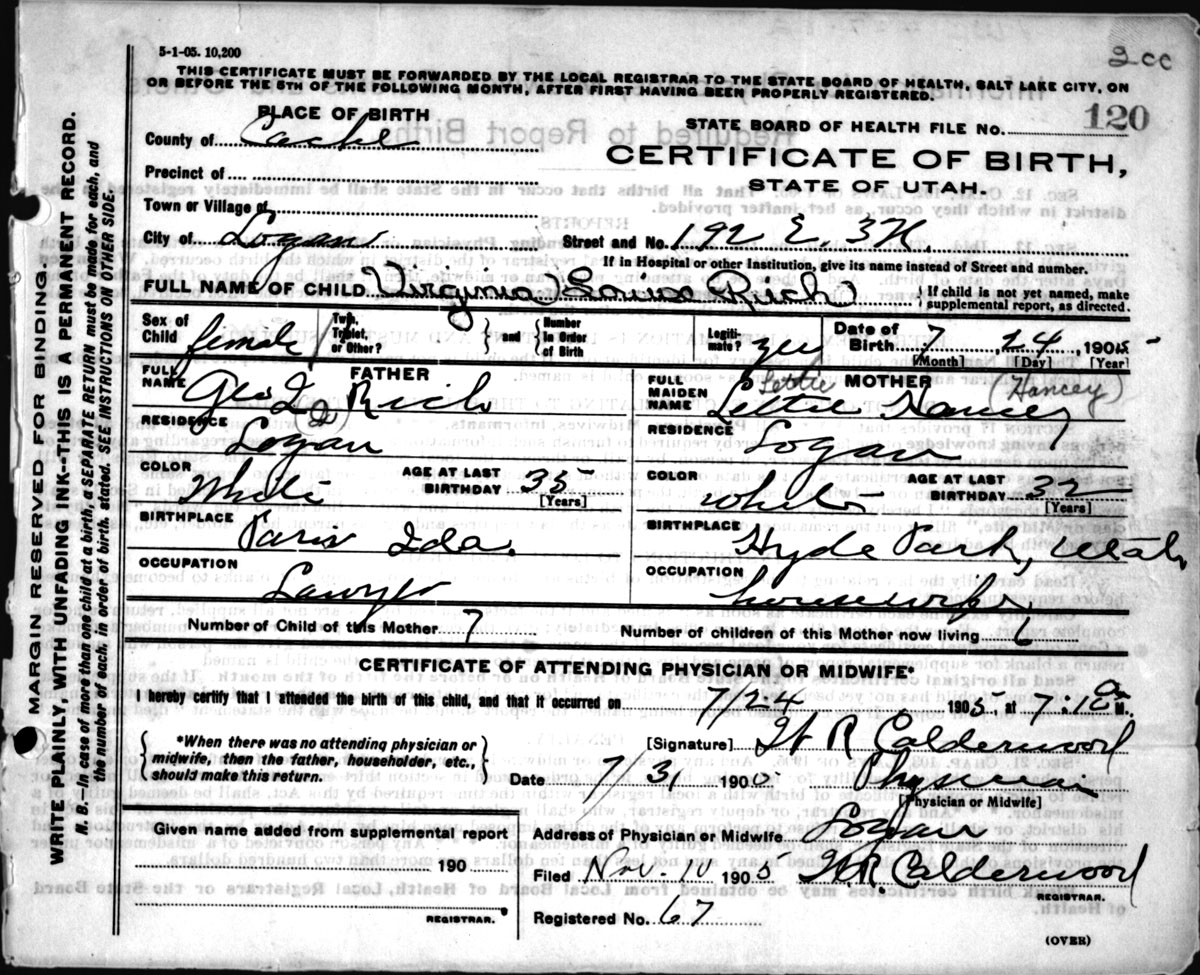 2cc
5-1-05. 10,200
THIS CERTIFICATE MUST BE FORWARDED BY THE LOCAL REGISTRAR TO THE STATE BOARD OF HEALTH, SALT LAKE CITY, ON
OR BEFORE THE 5TH OF THE FOLLOWING MONTH, AFTER FIRST HAVING BEEN PROPERLY REGISTERED.
PLACE OF BIRTH
STATE BOARD OF HEALTH FILE NO. 120
County of Cache
CERTIFICATE OF BIRTH,
STATE OF UTAH.
Precinct of
Town or Village of
City of Logan Street and No. 192 E. 3N.
If in Hospital or other Institution, give its name instead of Street and number.
FULL NAME OF CHILD Virginia Louise Rich { If child is not yet named, make supplemental report, as directed.
Sex of Child female Twin, Triplet, or Other? } and { Number in Order of Birth Legiti-mate? yes Date of Birth 7 24, 1905
[Month] [Day] [Year]
FATHER
FULL NAME Geo Q Rich (Q)
RESIDENCE Logan
COLOR White AGE AT LAST BIRTHDAY 35 [Years]
BIRTHPLACE Paris Ida.
OCCUPATION Lawyer
MOTHER
FULL MAIDEN NAME Lettie Hancey Lettie (Hancey)
RESIDENCE Logan
COLOR white AGE AT LAST BIRTHDAY 32 [Years]
BIRTHPLACE Hyde Park, Utah
OCCUPATION housewife
Number of Child of this Mother 7 Number of children of this Mother now living 6
CERTIFICATE OF ATTENDING PHYSICIAN OR MIDWIFE*
I hereby certify that I attended the birth of this child, and that it occurred on 7/24 1905 at 7:10 a M.
{ *When there was no attending physician or midwife, then the father, householder, etc., should make this return. }
[Signature] H R Calderwood
Date 7/31 1905 Physician
[Physician or Midwife]
Given name added from supplemental report
190
REGISTRAR.
Address of Physician or Midwife Logan
Filed Nov. 10 1905 H.R. Calderwood
REGISTRAR.
Registered No. 67
(OVER)
MARGIN RESERVED FOR BINDING.
WRITE PLAINLY, WITH UNFADING INK--THIS IS A PERMANENT RECORD.
N. B.--In case of more than one child at a birth, a SEPARATE RETURN must be made for each, and
the number of each, in order of birth, stated. SEE INSTRUCTIONS ON OTHER SIDE.